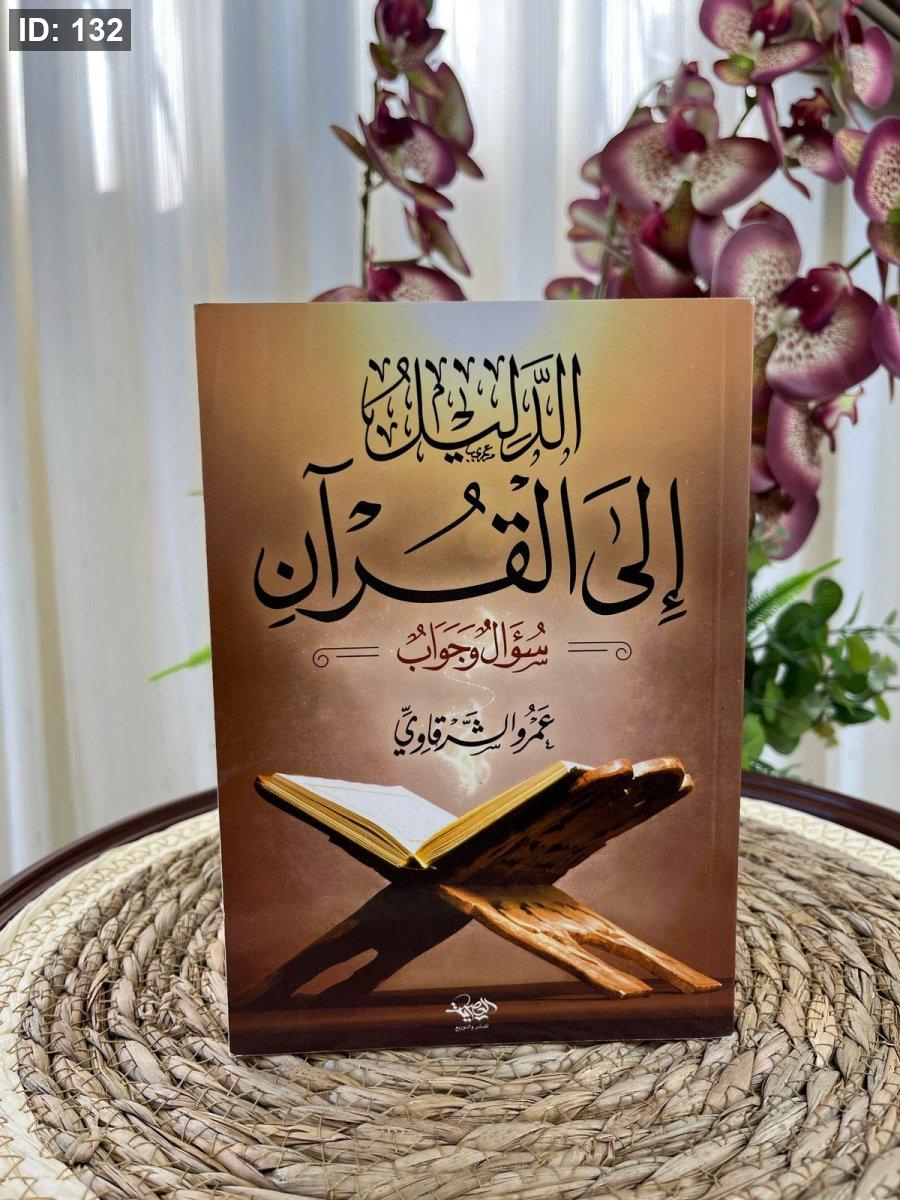 ID: 132
الدَّلِيْلُ
إِلَى الْقُرْآنِ
سُؤَالٌ وَجَوَابٌ
عَمْرُو الشَّرْقَاوِيّ
للنشر والتوزيع